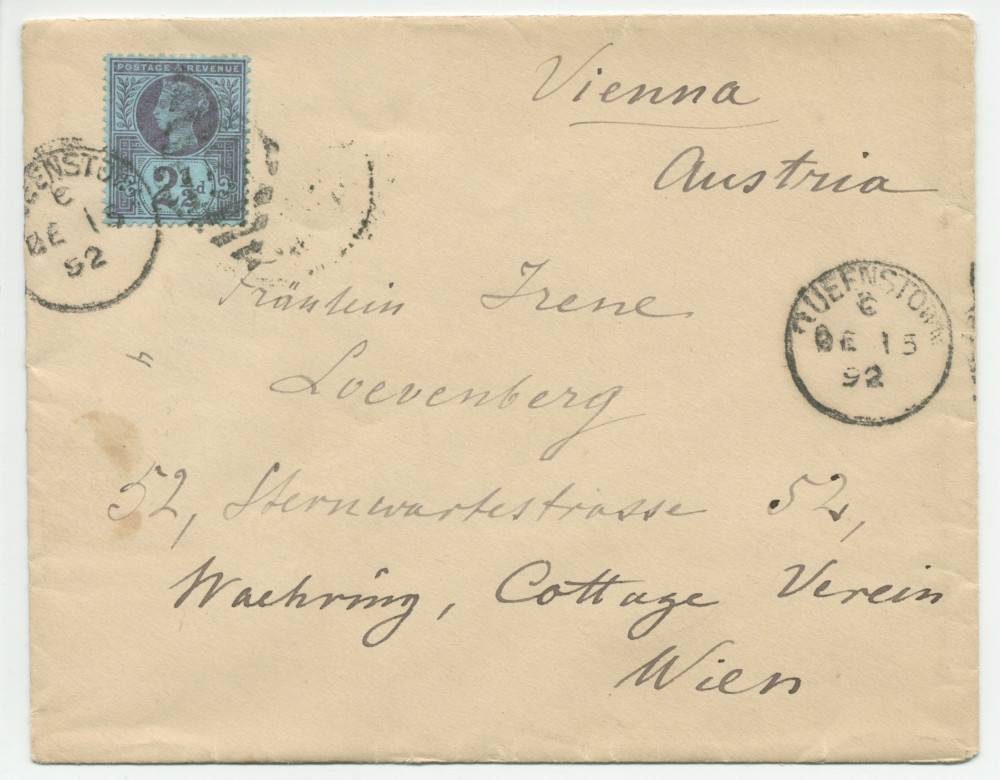 POSTAGE & REVENUE
2½d
Vienna
Austria
QUEENSTOWN
C
DE 15
92
QUEENSTOWN
C
DE 15
92
Fräulein Irene
Loevenberg
52, Sternwartestrasse 52,
Waehring, Cottage Verein
Wien